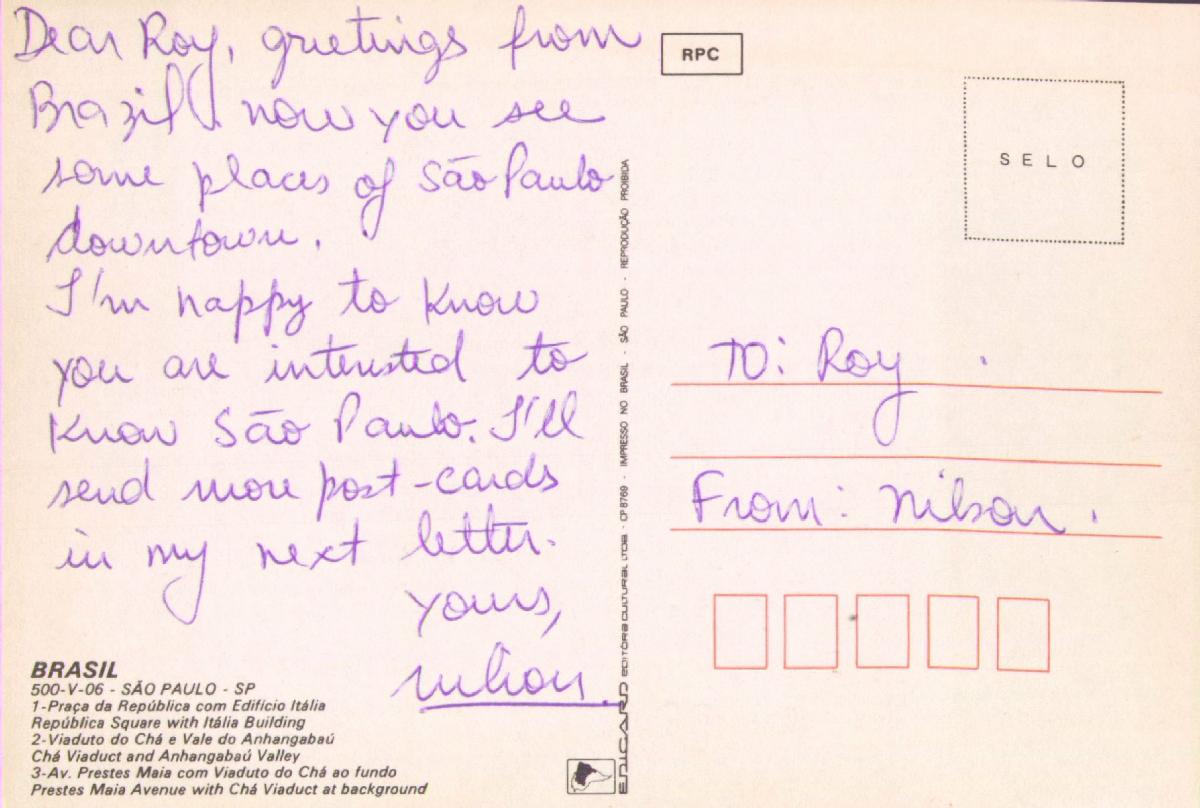 Dear Roy, greetings from
Brazil! now you see
some places of São Paulo
downtown.
I'm happy to know
you are interested to
know São Paulo. I'll
send more post-cards
in my next letter.
yours,
nilson.
BRASIL
500-V-06 - SÃO PAULO - SP
1-Praça da República com Edifício Itália
República Square with Itália Building
2-Viaduto do Chá e Vale do Anhangabaú
Chá Viaduct and Anhangabaú Valley
3-Av. Prestes Maia com Viaduto do Chá ao fundo
Prestes Maia Avenue with Chá Viaduct at background
EDICARD EDITÔRA CULTURAL LTDA. - CP 8769 - IMPRESSO NO BRASIL - SÃO PAULO - REPRODUÇÃO PROIBIDA
RPC
SELO
TO: Roy
From: nilson.